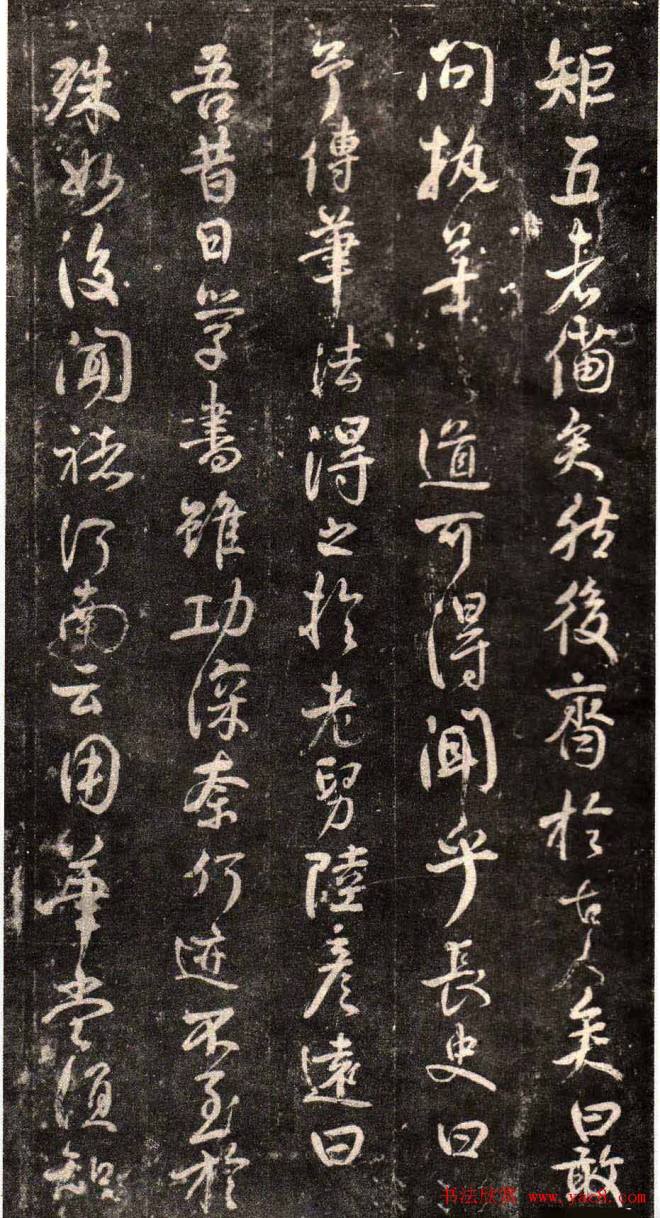 矩五者備矣然後齊於古人矣曰敢
問執筆道可得聞乎長史曰
予傳筆法得之於老舅陸彦遠曰
吾昔日學書雖功深奈何迹不至於
殊妙後聞褚河南云用筆當須知
书法欣赏 www.yac8.com